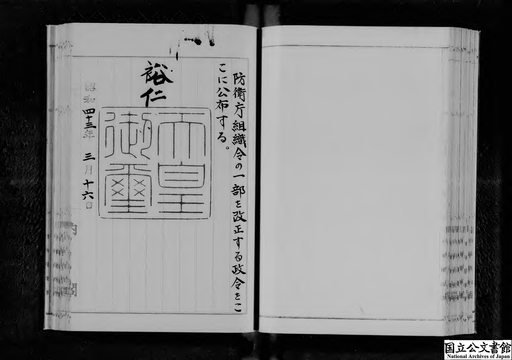 防衛庁組織令の一部を改正する政令をこ
こに公布する。
裕仁
天皇
御璽
昭和四十三年三月十六日
内閣
国立公文書館
National Archives of Japan